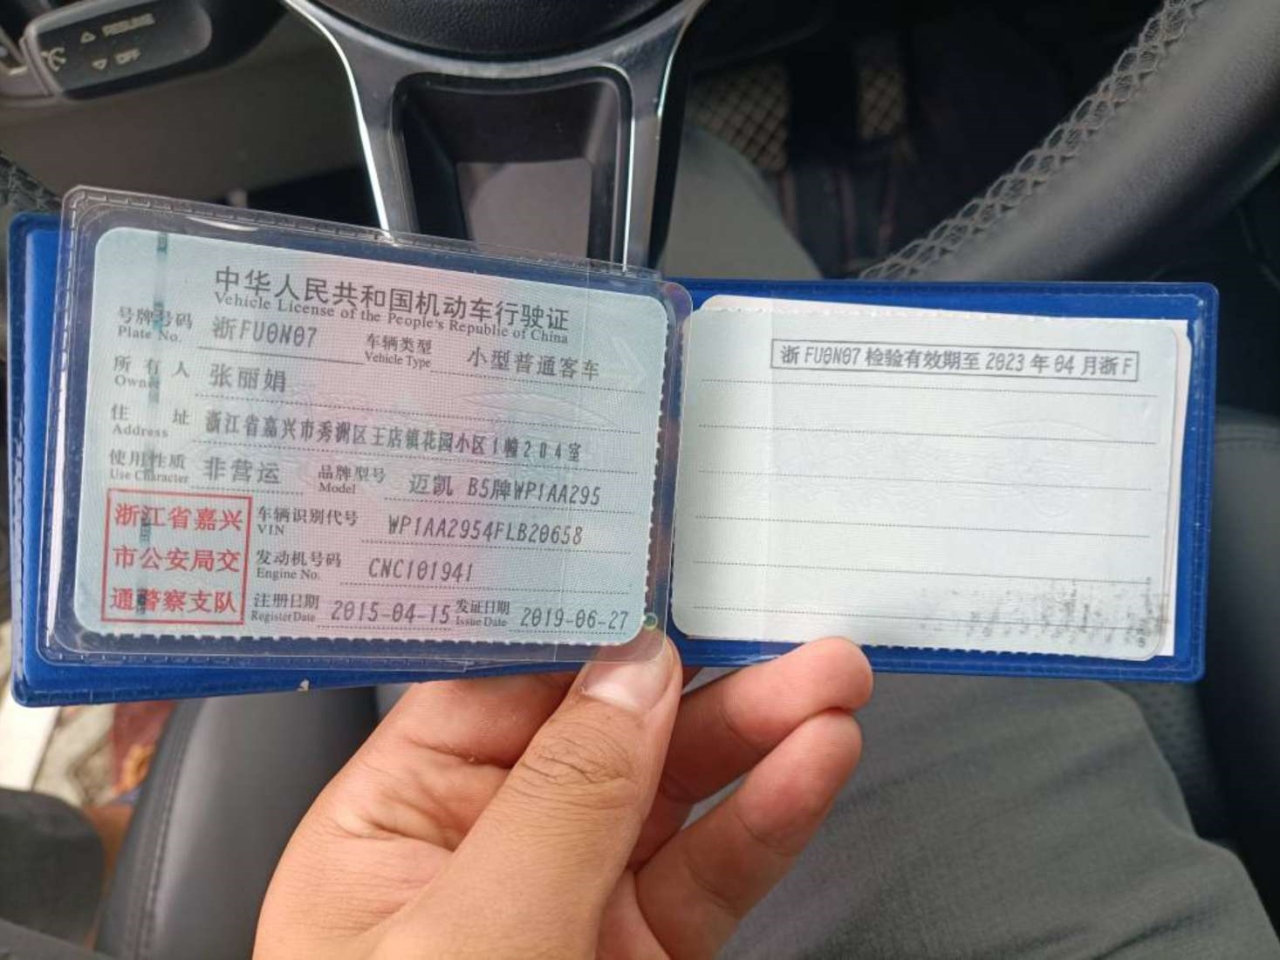 RESUME
OFF
中华人民共和国机动车行驶证
Vehicle License of the People's Republic of China
号牌号码 浙FU0N07 车辆类型 小型普通客车
Plate No. Vehicle Type
所有人 张丽娟
Owner
住址 浙江省嘉兴市秀洲区王店镇花园小区1幢204室
Address
使用性质 非营运 品牌型号 迈凯 B5牌WP1AA295
Use Character Model
浙江省嘉兴
市公安局交
通警察支队
车辆识别代号 WP1AA2954FLB20658
VIN
发动机号码 CNC101941
Engine No.
注册日期 2015-04-15 发证日期 2019-06-27
Register Date Issue Date
浙FU0N07 检验有效期至 2023 年 04 月浙F